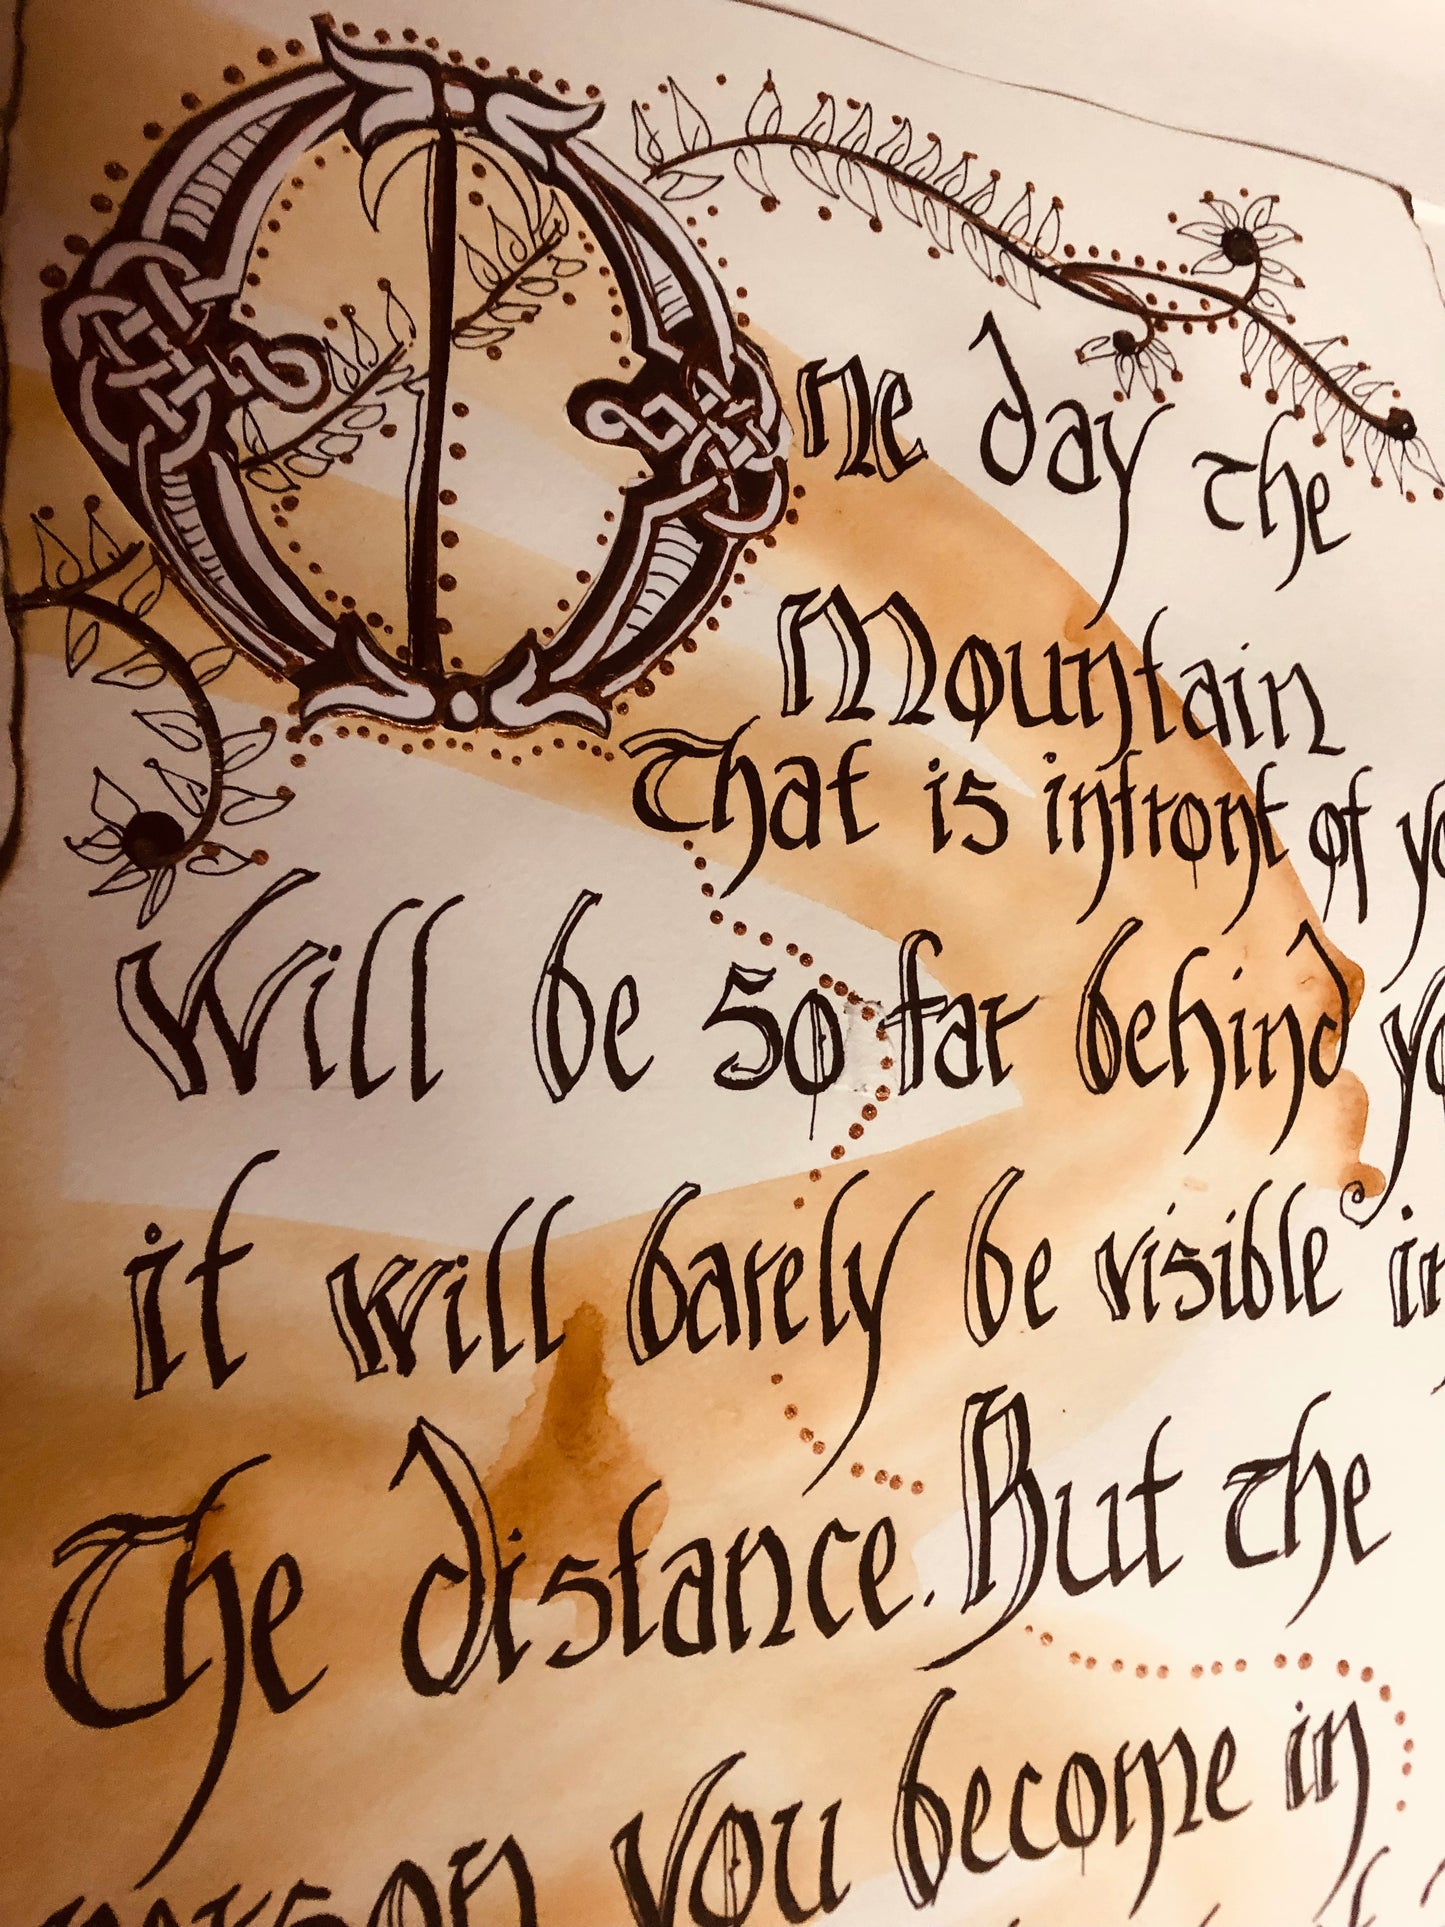 One day the
Mountain
That is infront of
Will be so far behind
it will barely be visible in
The distance. But the
person you become in